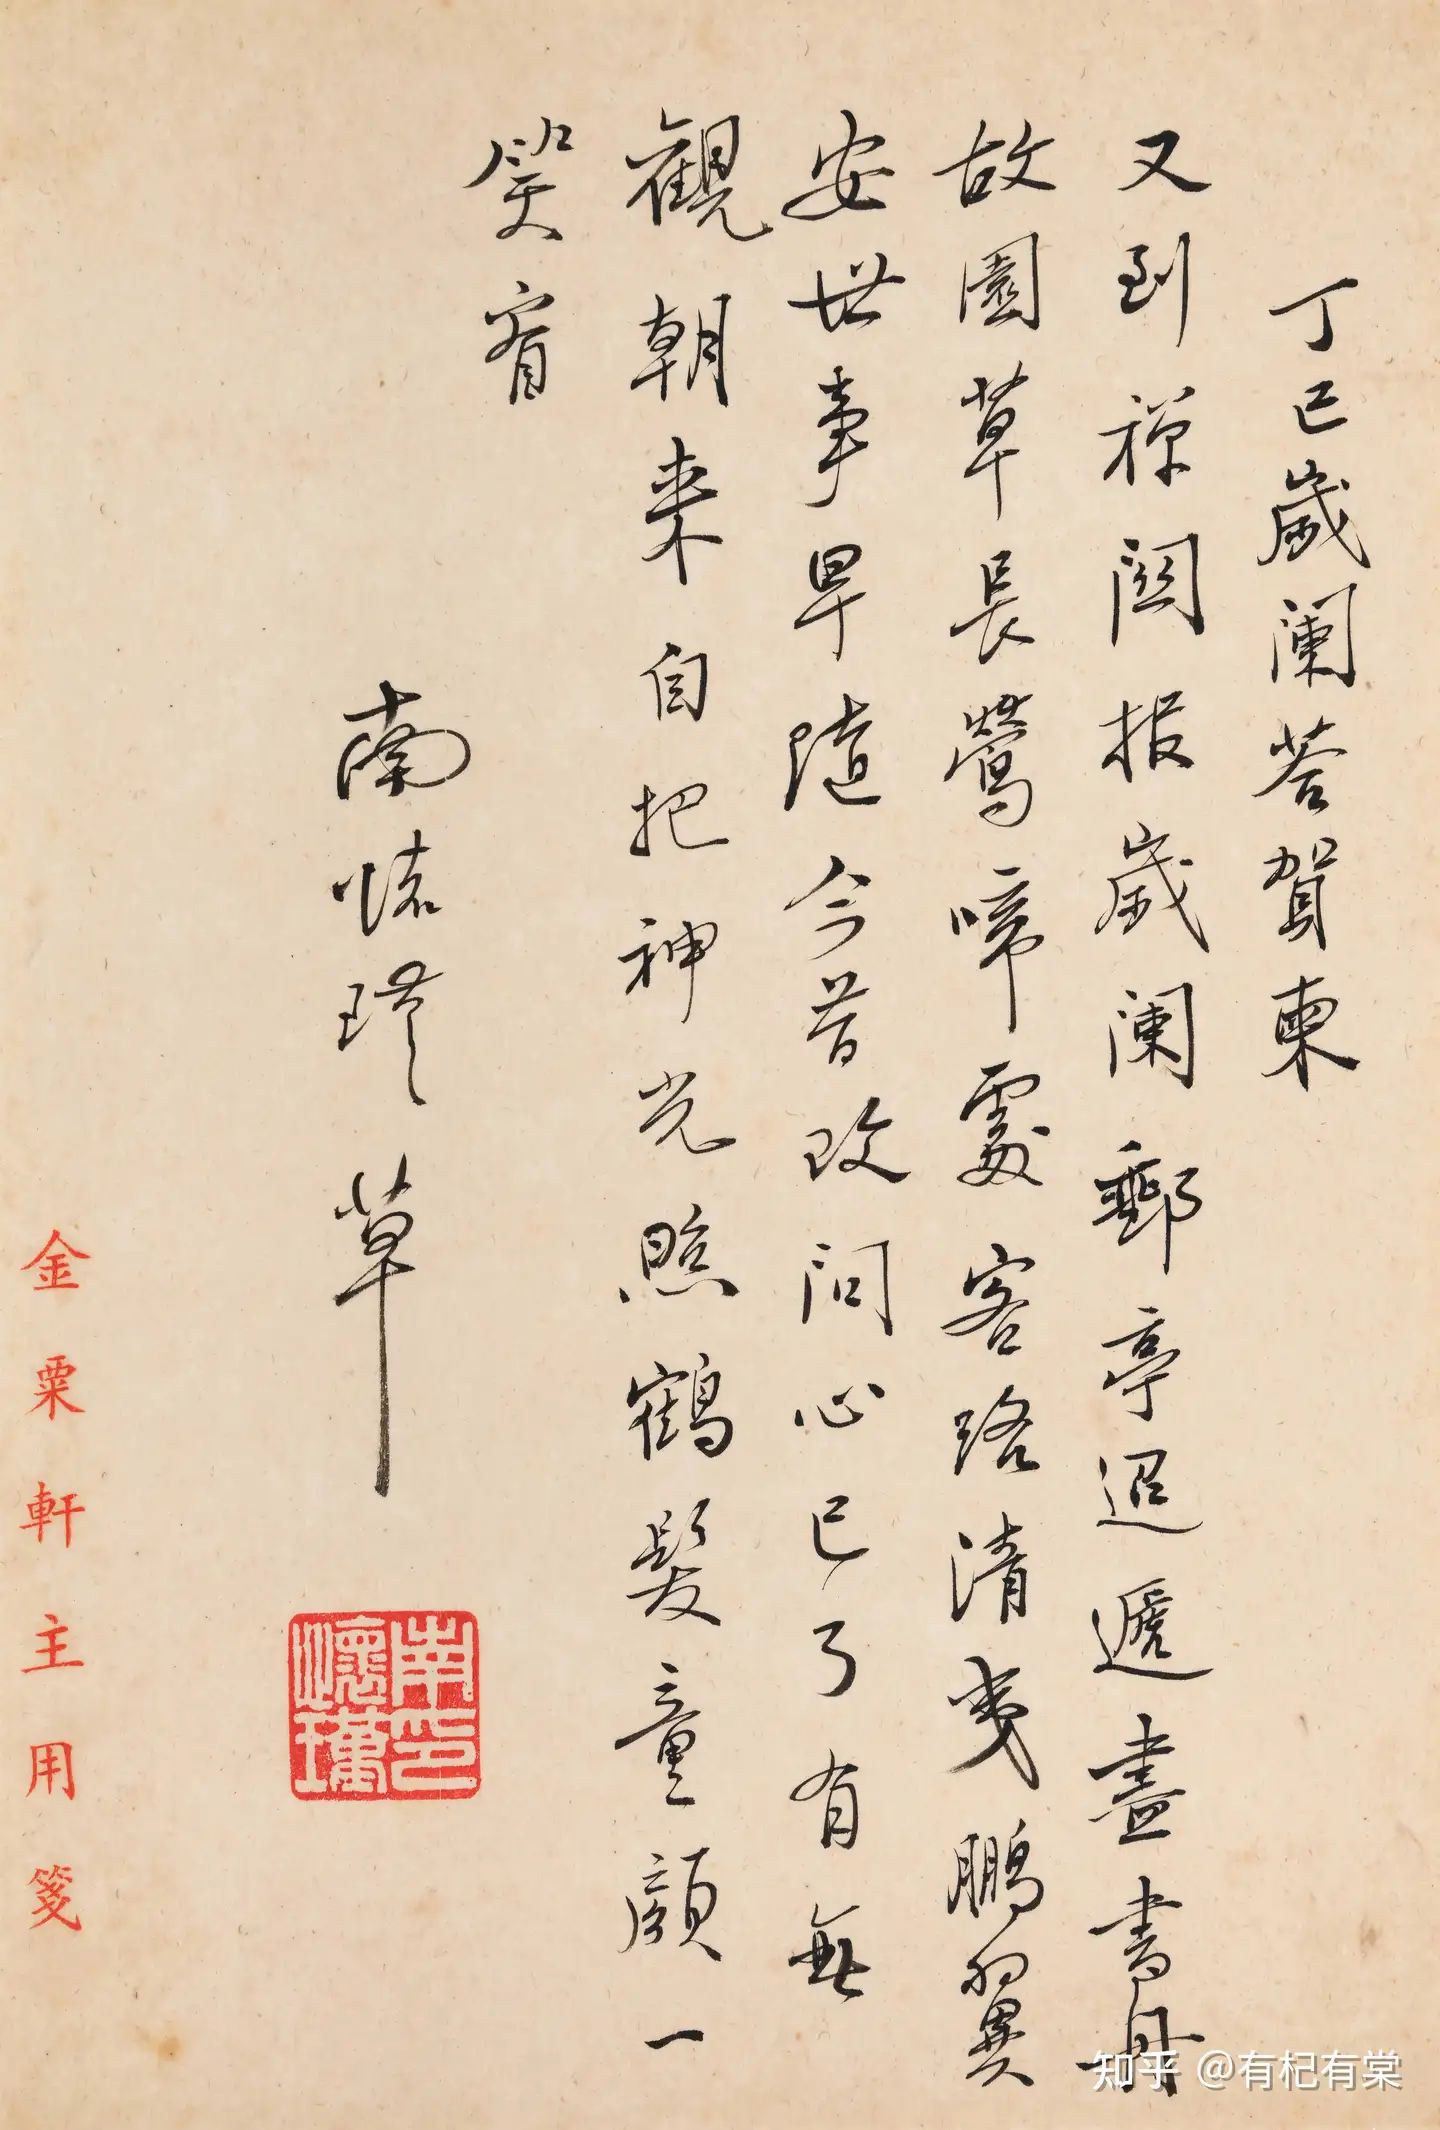 丁巳歲闌荅賀柬
又到禪關报歲闌郵亭迢遞盡書丹
故園草長鶯啼處客路清夷鵬翼
安世事早隨今昔改問心已了有無
觀朝來自把神光照鶴髮童顏一
笑看
南懷瑾 草
南懷瑾印
金粟軒主用箋
知乎 @有杞有棠